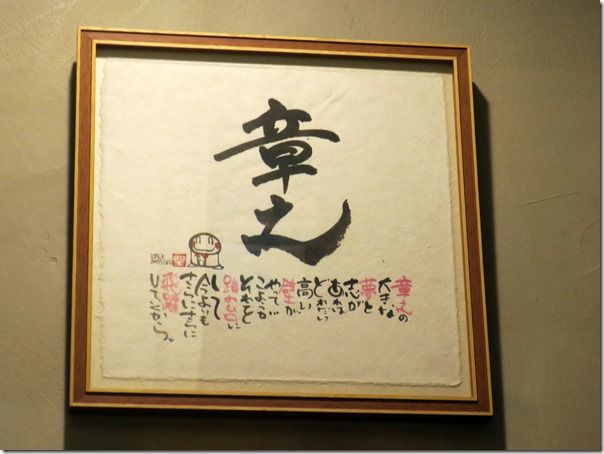 章之
章之の
大きな
夢と
志が
あれば
どれだけ
高い
壁が
やって
こようが
それを
踏み台に
して
今よりも
さらにさらに
飛躍